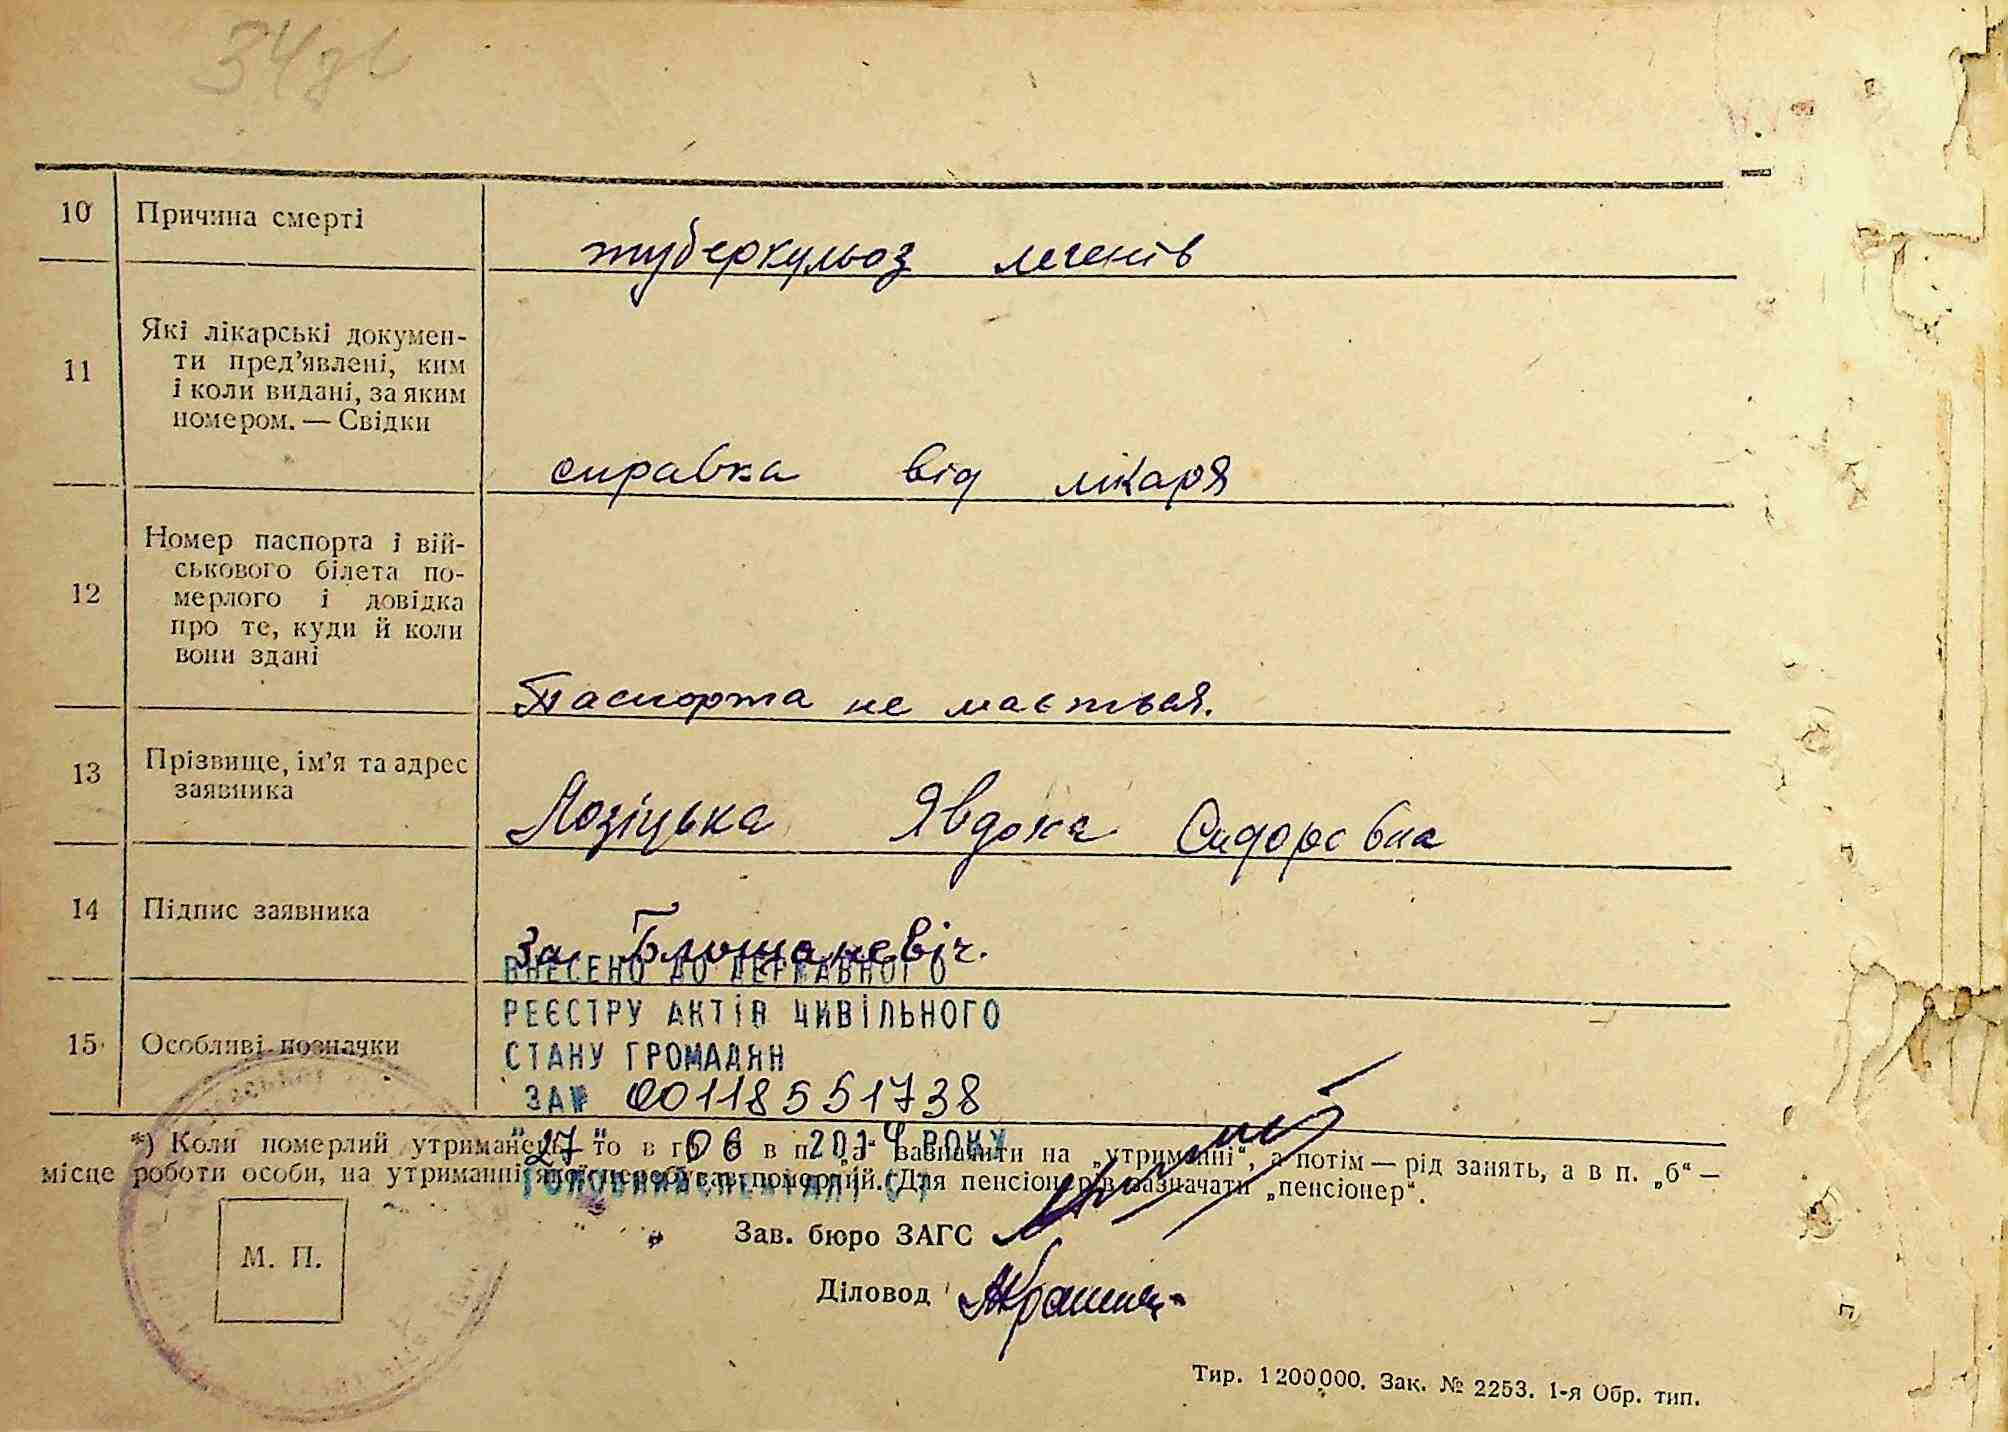 10 Причина смерті
туберкульоз легенів
11 Які лікарські докумен-
ти пред’явлені, ким
і коли видані, за яким
номером. — Свідки
справка від лікаря
12 Номер паспорта і вій-
ськового білета по-
мерлого і довідка
про те, куди й коли
вони здані
Паспорта не мається.
13 Прізвище, ім’я та адрес
заявника
Лозіцька Явдоха Сидоровна
14 Підпис заявника
За
ВНЕСЕНО ДО ДЕРЖАВНОГО
РЕЄСТРУ АКТІВ ЦИВІЛЬНОГО
15 Особливі позначки
СТАНУ ГРОМАДЯН
ЗА № 00118551738
"27" 06 2014 РОКУ
*) Коли померлий утриманець, то в гр. в п. „а“ зазначити на „утриманні“, а потім — рід занять, а в п. „б“ —
місце роботи особи, на утриманні якої перебував померлий. Для пенсіонерів зазначати „пенсіонер“.
Зав. бюро ЗАГС
М. П.
Діловод
Тир. 1200000. Зак. № 2253. 1-я Обр. тип.